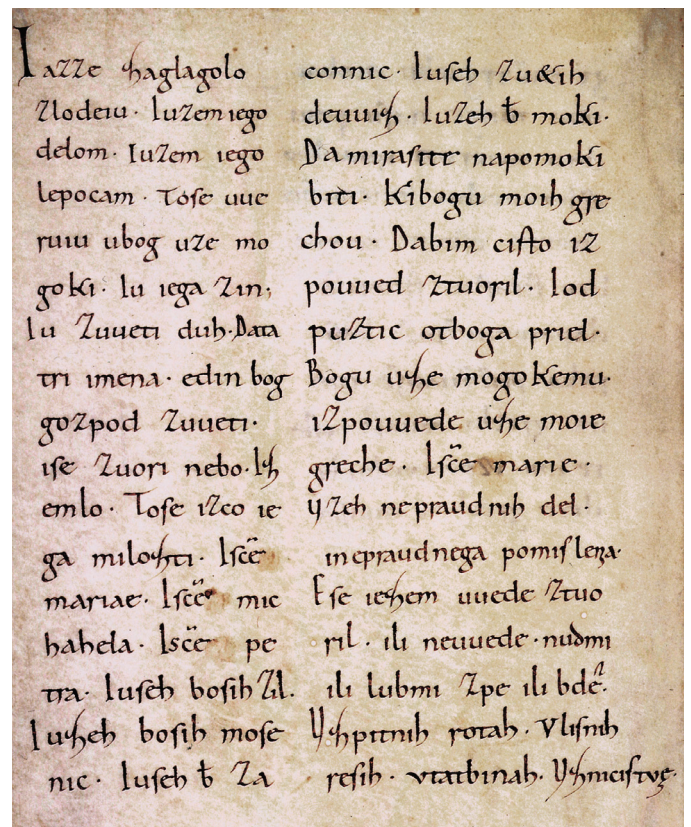 Iazze zaglagolo
zlodeiu. Iuzem iego
delom. Iuzem iego
lepocam. Tose uue
ruiu ubog uze mo
goki. Iu iega zin.
Iu zuueti duh. Data
tri imena. edin bog
gozpod zuueti.
ise zuori nebo. Iz
emlo. Tose izco ie
ga milozti. Isce
mariae. Isce mic
hahela. Isce pe
tra. Iuseh bosih zil.
Iuzeh bosih mose
nic. Iuseh b za
connic. Iuseh zu&ih
deuuiz. Iuzeh b moki.
Da mirasite napomoki
biti. Kibogu moih gre
chou. Dabim cisto iz
pouued ztuoril. Iod
puztic otboga priel.
Bogu uze mogokemu.
izpouuede uze moie
greche. Isce marie.
Vzeh nepraudnih del.
inepraudnega pomislena.
Ese iezem uuede ztuo
ril. ili neuuede. nudmi
ili lubmi zpe ili bde.
Vzpitnih rotah. Vlisnih
resih. vtatbinah. Vznicistve.